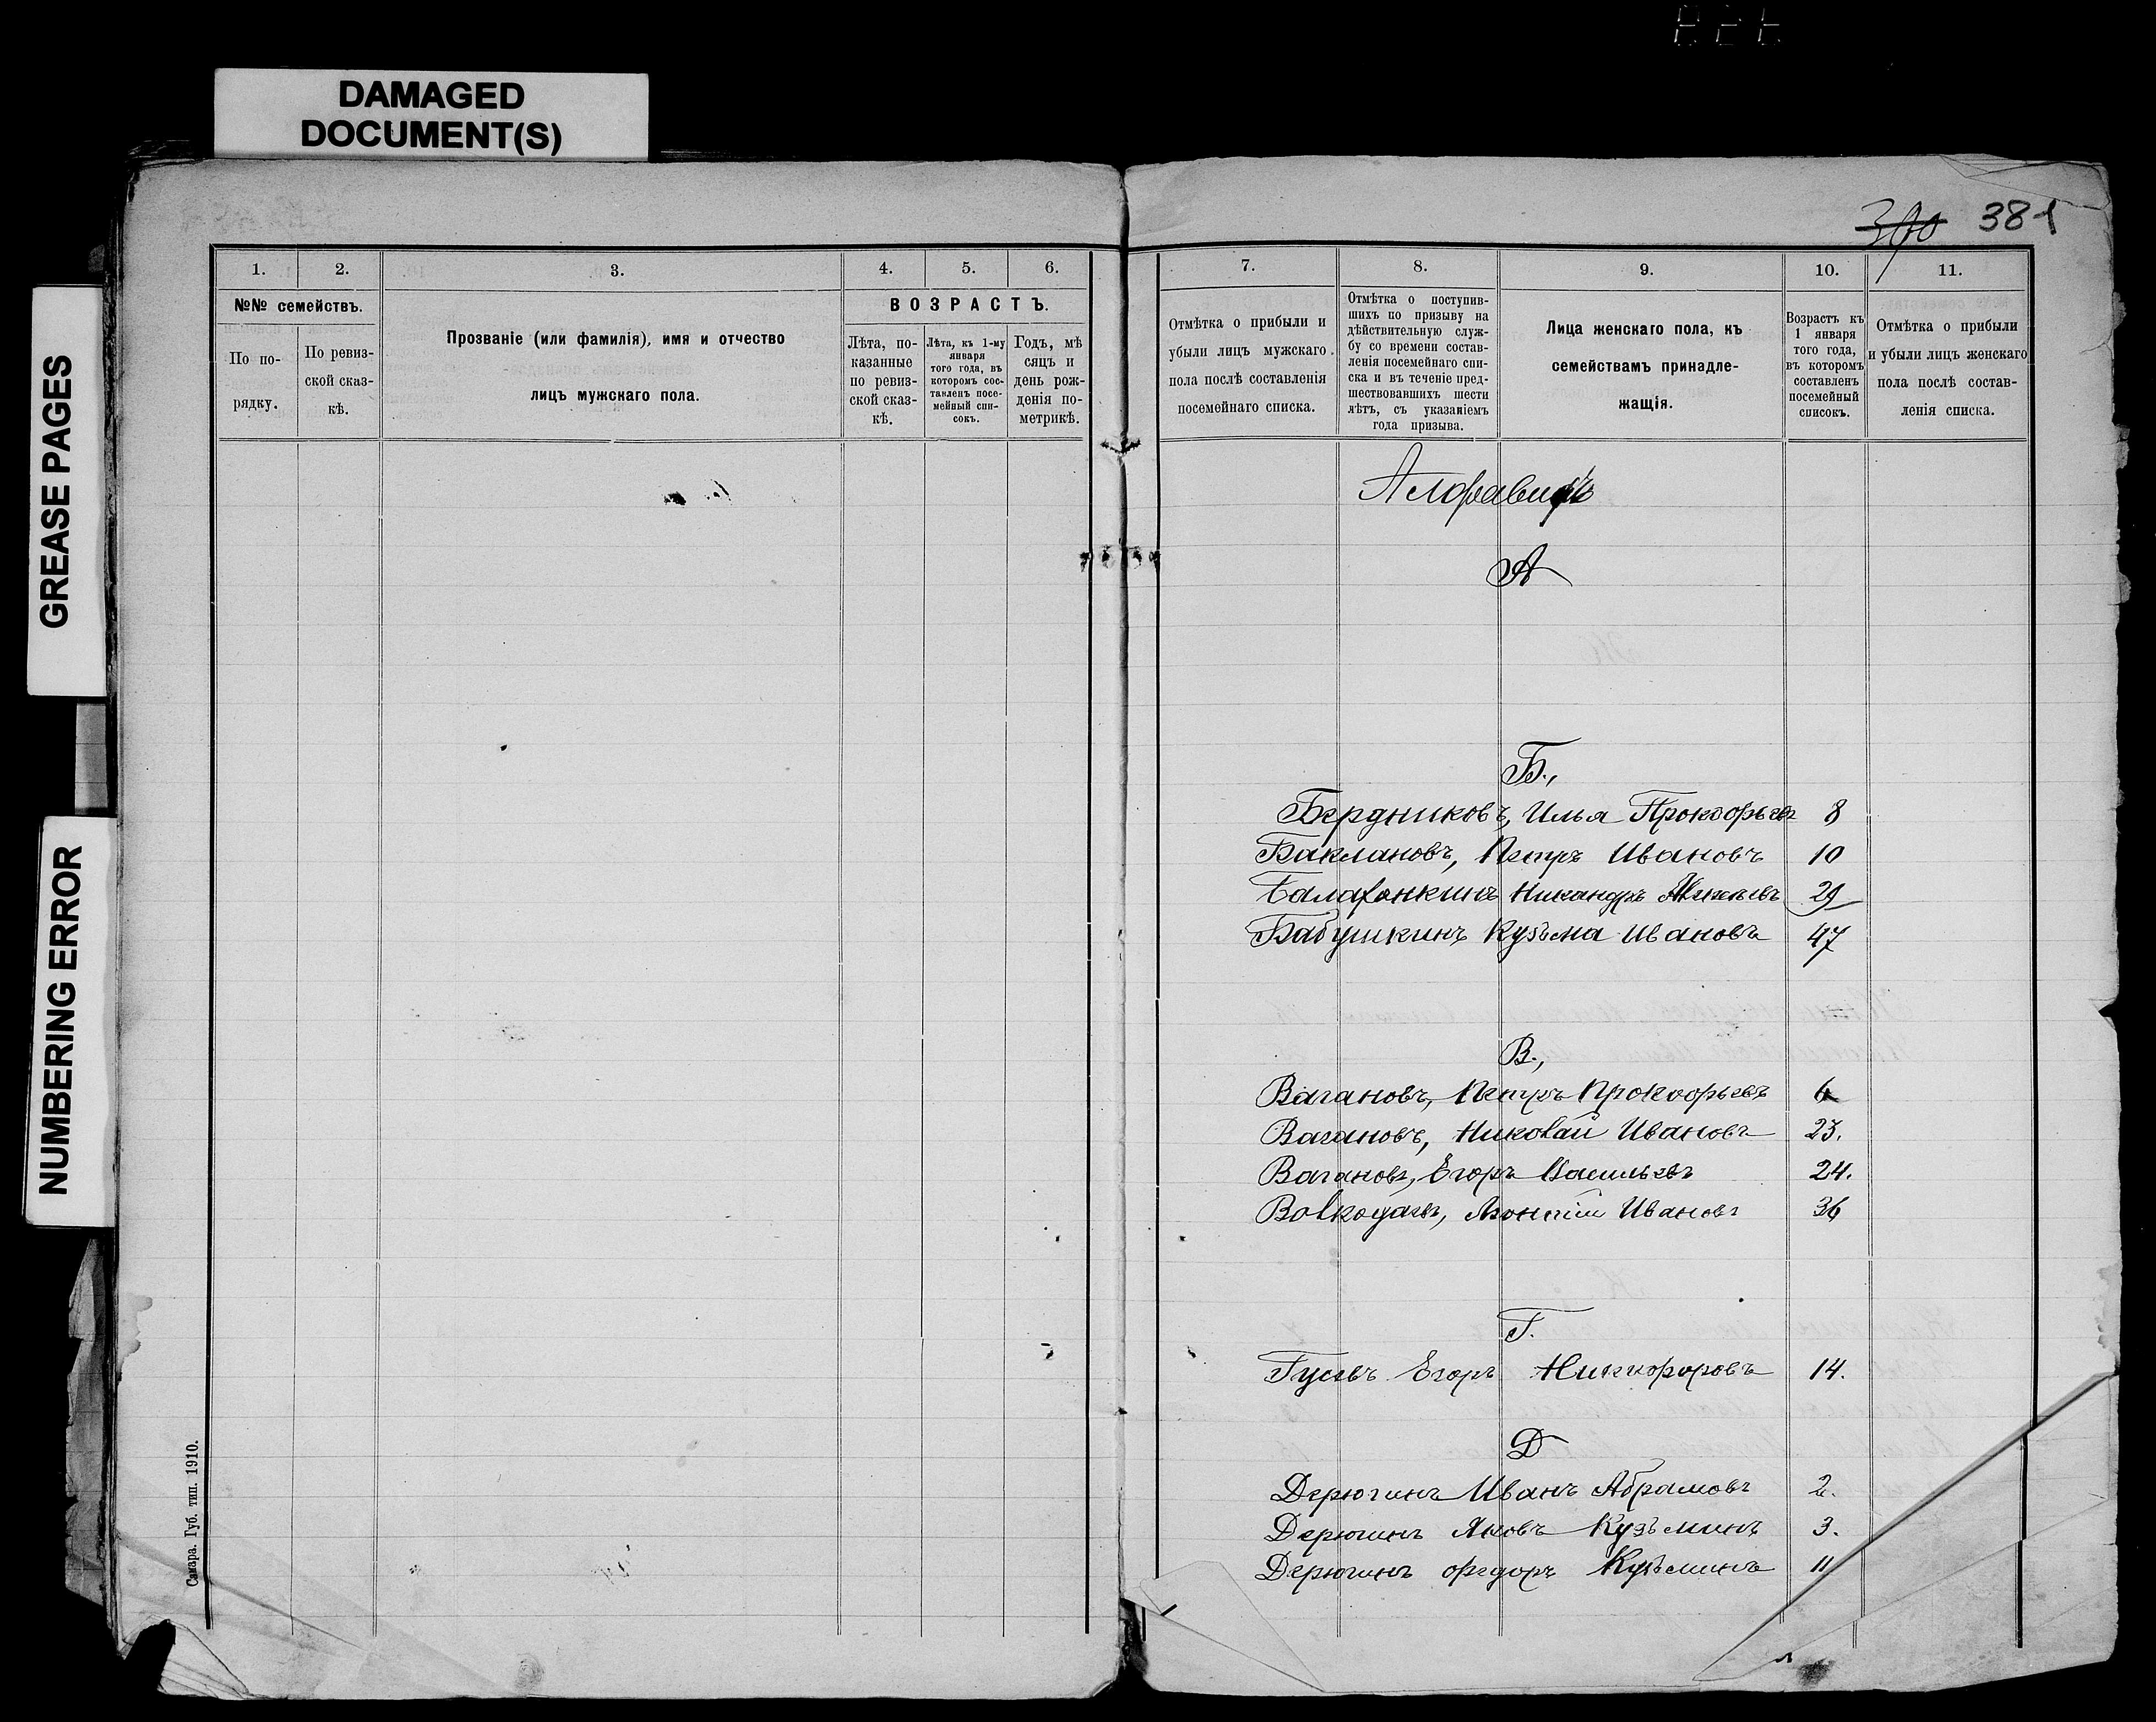 DAMAGED
DOCUMENT(S)
GREASE PAGES
NUMBERING ERROR
300 381
1. 2. 3. 4. 5. 6.
№№ семействъ.
По по-
рядку.
По ревиз-
ской сказ-
кѣ.
Прозваніе (или фамилія), имя и отчество
лицъ мужскаго пола.
ВОЗРАСТЪ.
Лѣта, по-
казанные
по ревиз-
ской сказ-
кѣ.
Лѣта, къ 1-му
января
того года, въ
которомъ сос-
тавленъ посе-
мейный спи-
сокъ.
Годъ, мѣ
сяцъ и
день рож-
денія по-
метрикѣ.
7. 8. 9. 10. 11.
Отмѣтка о прибыли и
убыли лицъ мужскаго
пола послѣ составленія
посемейнаго списка.
Отмѣтка о поступив-
шихъ по призыву на
дѣйствительную служ-
бу со времени состав-
ленія посемейнаго спи-
ска и въ теченіе пред-
шествовавшихъ шести
лѣтъ, съ указаніемъ
года призыва.
Лица женскаго пола, къ
семействамъ принадле-
жащія.
Возрастъ къ
1 января
того года,
въ которомъ
составленъ
посемейный
списокъ.
Отмѣтка о прибыли
и убыли лицъ женскаго
пола послѣ состав-
ленія списка.
А
Б.,
Бердниковъ, Илья Прокофьевъ 8
Баклановъ, Петръ Ивановъ 10
Балафонкинъ Никандръ 29
Бабушкинъ Кузьма Ивановъ 47
В.,
Вагановъ, Петръ Прокофьевъ 6
Вагановъ, Николай Ивановъ 23.
Вагановъ, Егоръ Васильевъ 24.
Волкодаевъ, Леонтій Ивановъ 36
Г.
Гусевъ Егоръ Никифоровъ 14.
Д
Дерюгинъ Иванъ Абрамовъ 2.
Дерюгинъ Яковъ Кузьминъ 3.
Дерюгинъ Федоръ Кузьминъ 11
Самара. Губ. тип. 1910.